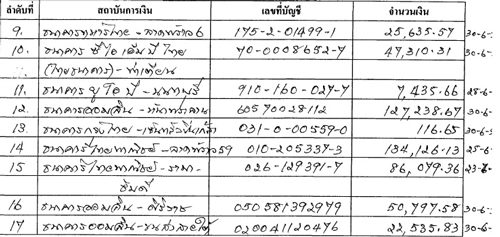 ลำดับที่ สถาบันการเงิน เลขที่บัญชี จำนวนเงิน
9. ธนาคารทหารไทย - ลาดพร้าว 6 175-2-01499-1 25,635.57 30-6-
10. ธนาคาร ซีไอเอ็มบี ไทย 70-0008652-7 47,310.31 30-6-
(ไทยธนาคาร) - ท่าเตียน
11. ธนาคาร ยูโอบี - นนทบุรี 910-160-027-7 7,435.66 25-6-
12. ธนาคารออมสิน 60570028112 127,238.67 30-6-
13. ธนาคารกรุงไทย 031-0-00559-0 116.65 30-6-
14 ธนาคารไทยพาณิชย์ - ลาดพร้าว 59 010-205337-3 134,126.13 25-6-
15 ธนาคารไทยพาณิชย์ - รามา- 026-129391-7 86,079.36 23-6-
ธิบดี
16 ธนาคารออมสิน - ศิริราช 050581392979 50,797.58 30-6-
17 ธนาคารออมสิน 020041120476 22,535.83 30-6-